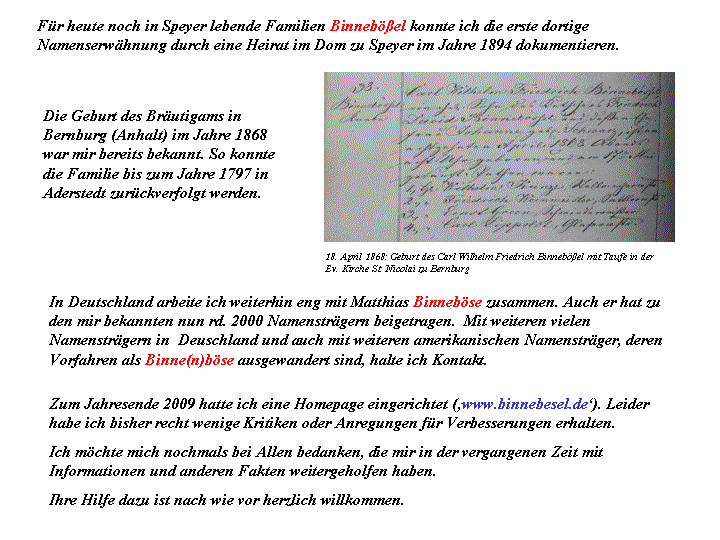 Für heute noch in Speyer lebende Familien Binnebößel konnte ich die erste dortige
Namenserwähnung durch eine Heirat im Dom zu Speyer im Jahre 1894 dokumentieren.
Die Geburt des Bräutigams in
Bernburg (Anhalt) im Jahre 1868
war mir bereits bekannt. So konnte
die Familie bis zum Jahre 1797 in
Aderstedt zurückverfolgt werden.
193.
Carl Wilhelm Friedrich Binnebößel
18. April 1868: Geburt des Carl Wilhelm Friedrich Binnebößel mit Taufe in der
Ev. Kirche St. Nicolai zu Bernburg
In Deutschland arbeite ich weiterhin eng mit Matthias Binneböse zusammen. Auch er hat zu
den mir bekannten nun rd. 2000 Namensträgern beigetragen. Mit weiteren vielen
Namensträgern in Deuschland und auch mit weiteren amerikanischen Namensträger, deren
Vorfahren als Binne(n)böse ausgewandert sind, halte ich Kontakt.
Zum Jahresende 2009 hatte ich eine Homepage eingerichtet (‚www.binnebesel.de‘). Leider
habe ich bisher recht wenige Kritiken oder Anregungen für Verbesserungen erhalten.
Ich möchte mich nochmals bei Allen bedanken, die mir in der vergangenen Zeit mit
Informationen und anderen Fakten weitergeholfen haben.
Ihre Hilfe dazu ist nach wie vor herzlich willkommen.